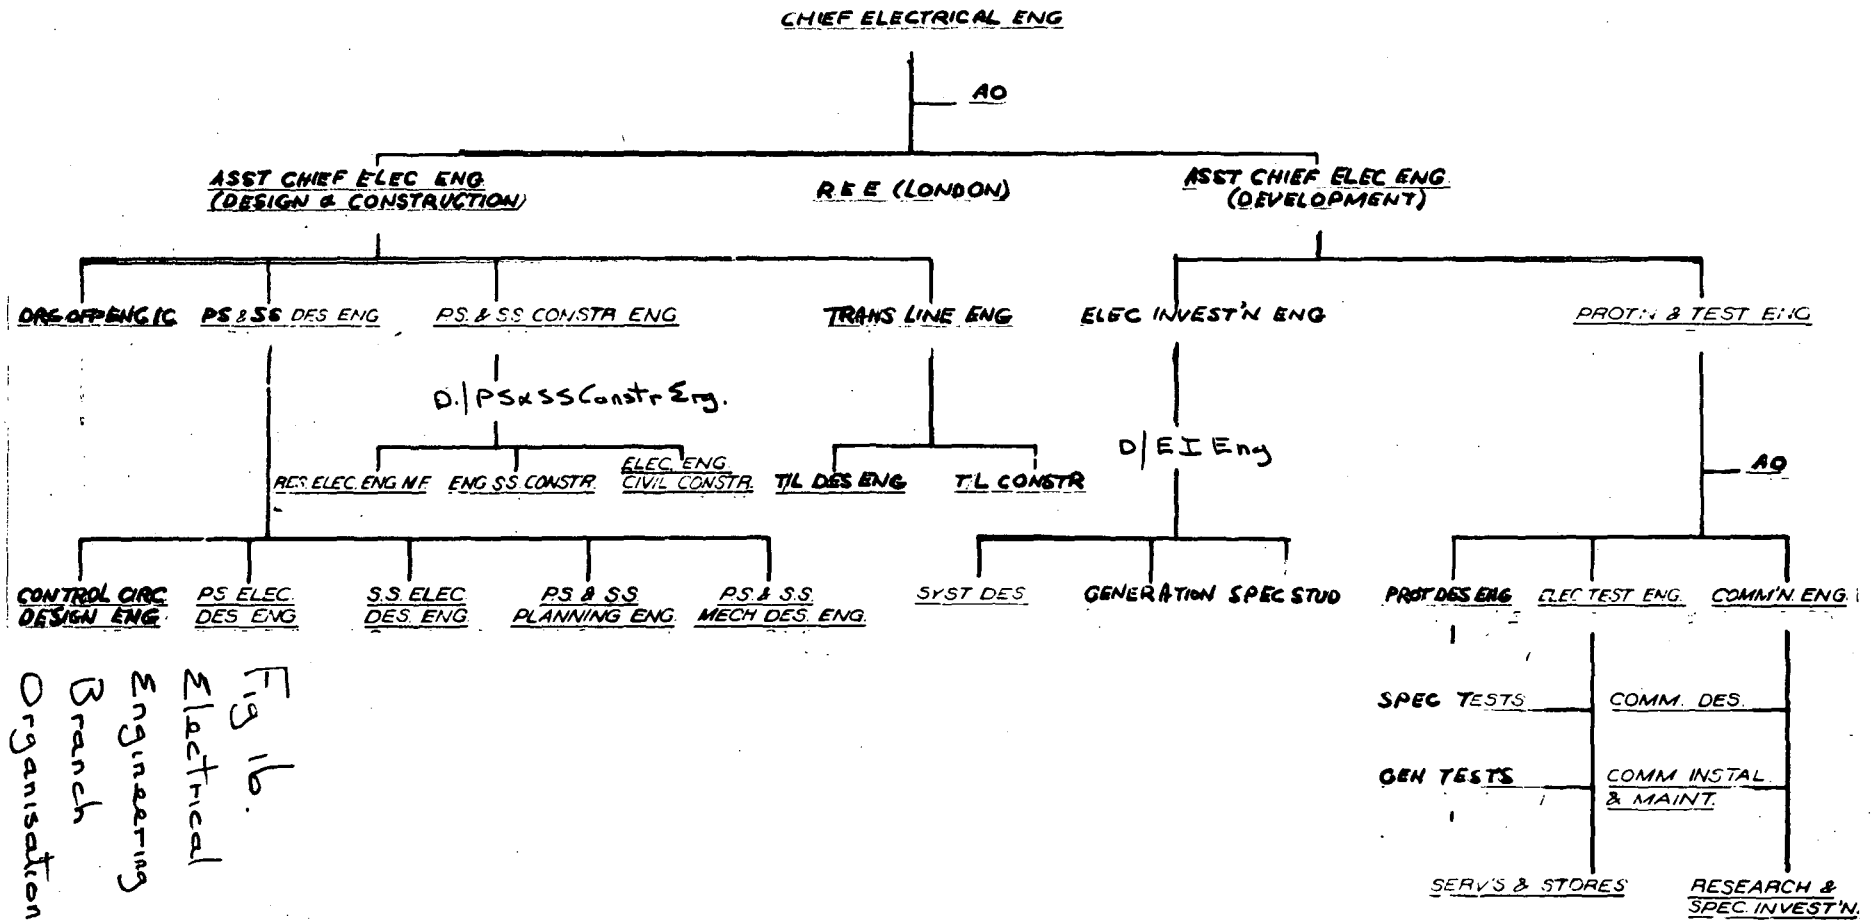 CHIEF ELECTRICAL ENG
AO
ASST CHIEF ELEC ENG
(DESIGN & CONSTRUCTION)
R E E (LONDON)
ASST CHIEF ELEC ENG
(DEVELOPMENT)
ENG IC
PS & SS DES ENG
PS. & SS CONSTR ENG
TRANS LINE ENG
ELEC INVEST'N ENG
PROT'N & TEST ENG
D./PS & SS Constr Eng.
D/EI Eng
RES. ELEC. ENG NF
ENG SS. CONSTR.
ELEC. ENG.
CIVIL CONSTR.
T/L DES ENG
T/L CONSTR
AO
CONTROL CIRC
DESIGN ENG.
PS ELEC.
DES ENG
S.S. ELEC.
DES. ENG.
PS & SS.
PLANNING ENG.
P.S. & S.S.
MECH DES. ENG.
SYST DES
GENERATION SPEC STUD
PROT DES ENG
ELEC TEST ENG.
COMM'N. ENG.
SPEC TESTS
COMM. DES.
GEN TESTS
COMM INSTAL.
& MAINT.
SERV'S & STORES
RESEARCH &
SPEC. INVEST'N.
Fig 1b.
Electrical
Engineering
Branch
Organisation